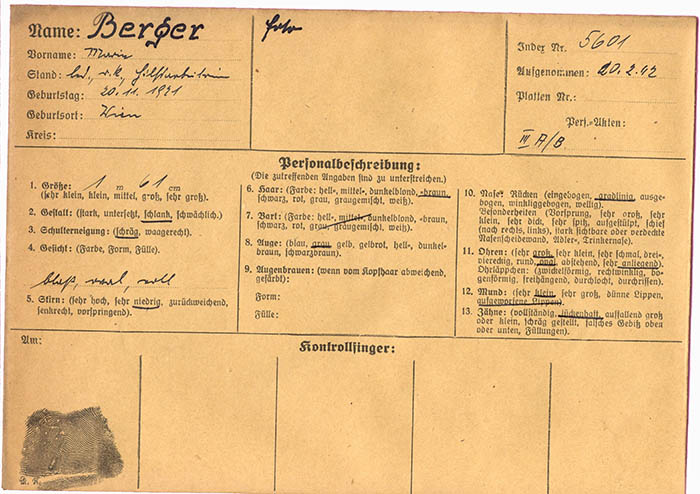 Name: Berger
Vorname: Marie
Stand: led, r. k., Hilfsarbeiterin
Geburtstag: 20. 11. 1921
Geburtsort: Wien
Kreis:
Foto
Index Nr. 5601
Aufgenommen: 20. 2. 42
Platten Nr.:
Pers.-Akten:
III A/B
Personalbeschreibung:
(Die zutreffenden Angaben sind zu unterstreichen.)
1. Größe: 1 m 61 cm
(sehr klein, klein, mittel, groß, sehr groß).
2. Gestalt: (stark, untersetzt, schlank, schwächlich).
3. Schulterneigung: (schräg, waagerecht).
4. Gesicht: (Farbe, Form, Fülle).
blaß, oval, voll
5. Stirn: (sehr hoch, sehr niedrig, zurückweichend,
senkrecht, vorspringend).
6. Haar: (Farbe: hell-, mittel-, dunkelblond, -braun,
schwarz, rot, grau, graugemischt, weiß).
7. Bart: (Farbe: hell-, mittel-, dunkelblond, -braun,
schwarz, rot, grau, graugemischt, weiß).
8. Auge: (blau, grau, gelb, gelbrot, hell-, dunkel-
braun, schwarzbraun).
9. Augenbrauen: (wenn vom Kopfhaar abweichend,
gefärbt):
Form:
Fülle:
10. Nase: Rücken (eingebogen, gradlinig, ausge-
bogen, winkliggebogen, wellig).
Besonderheiten (Vorsprung, sehr groß, sehr
klein, sehr dick, sehr spitz, aufgestülpt, schief
(nach rechts, links), stark sichtbare oder verdeckte
Nasenscheidewand, Adler-, Trinkernase).
11. Ohren: (sehr groß, sehr klein, sehr schmal, drei-,
viereckig, rund, oval, abstehend, sehr anliegend).
Ohrläppchen: (zwickelförmig, rechtwinklig, bo-
genförmig, freihängend, durchlocht, durchrissen).
12. Mund: (sehr klein, sehr groß, dünne Lippen,
aufgeworfene Lippen).
13. Zähne: (vollständig, lückenhaft, auffallend groß
oder klein, schräg gestellt, falsches Gebiß oben
oder unten, Füllungen).
Am:
Kontrollfinger: